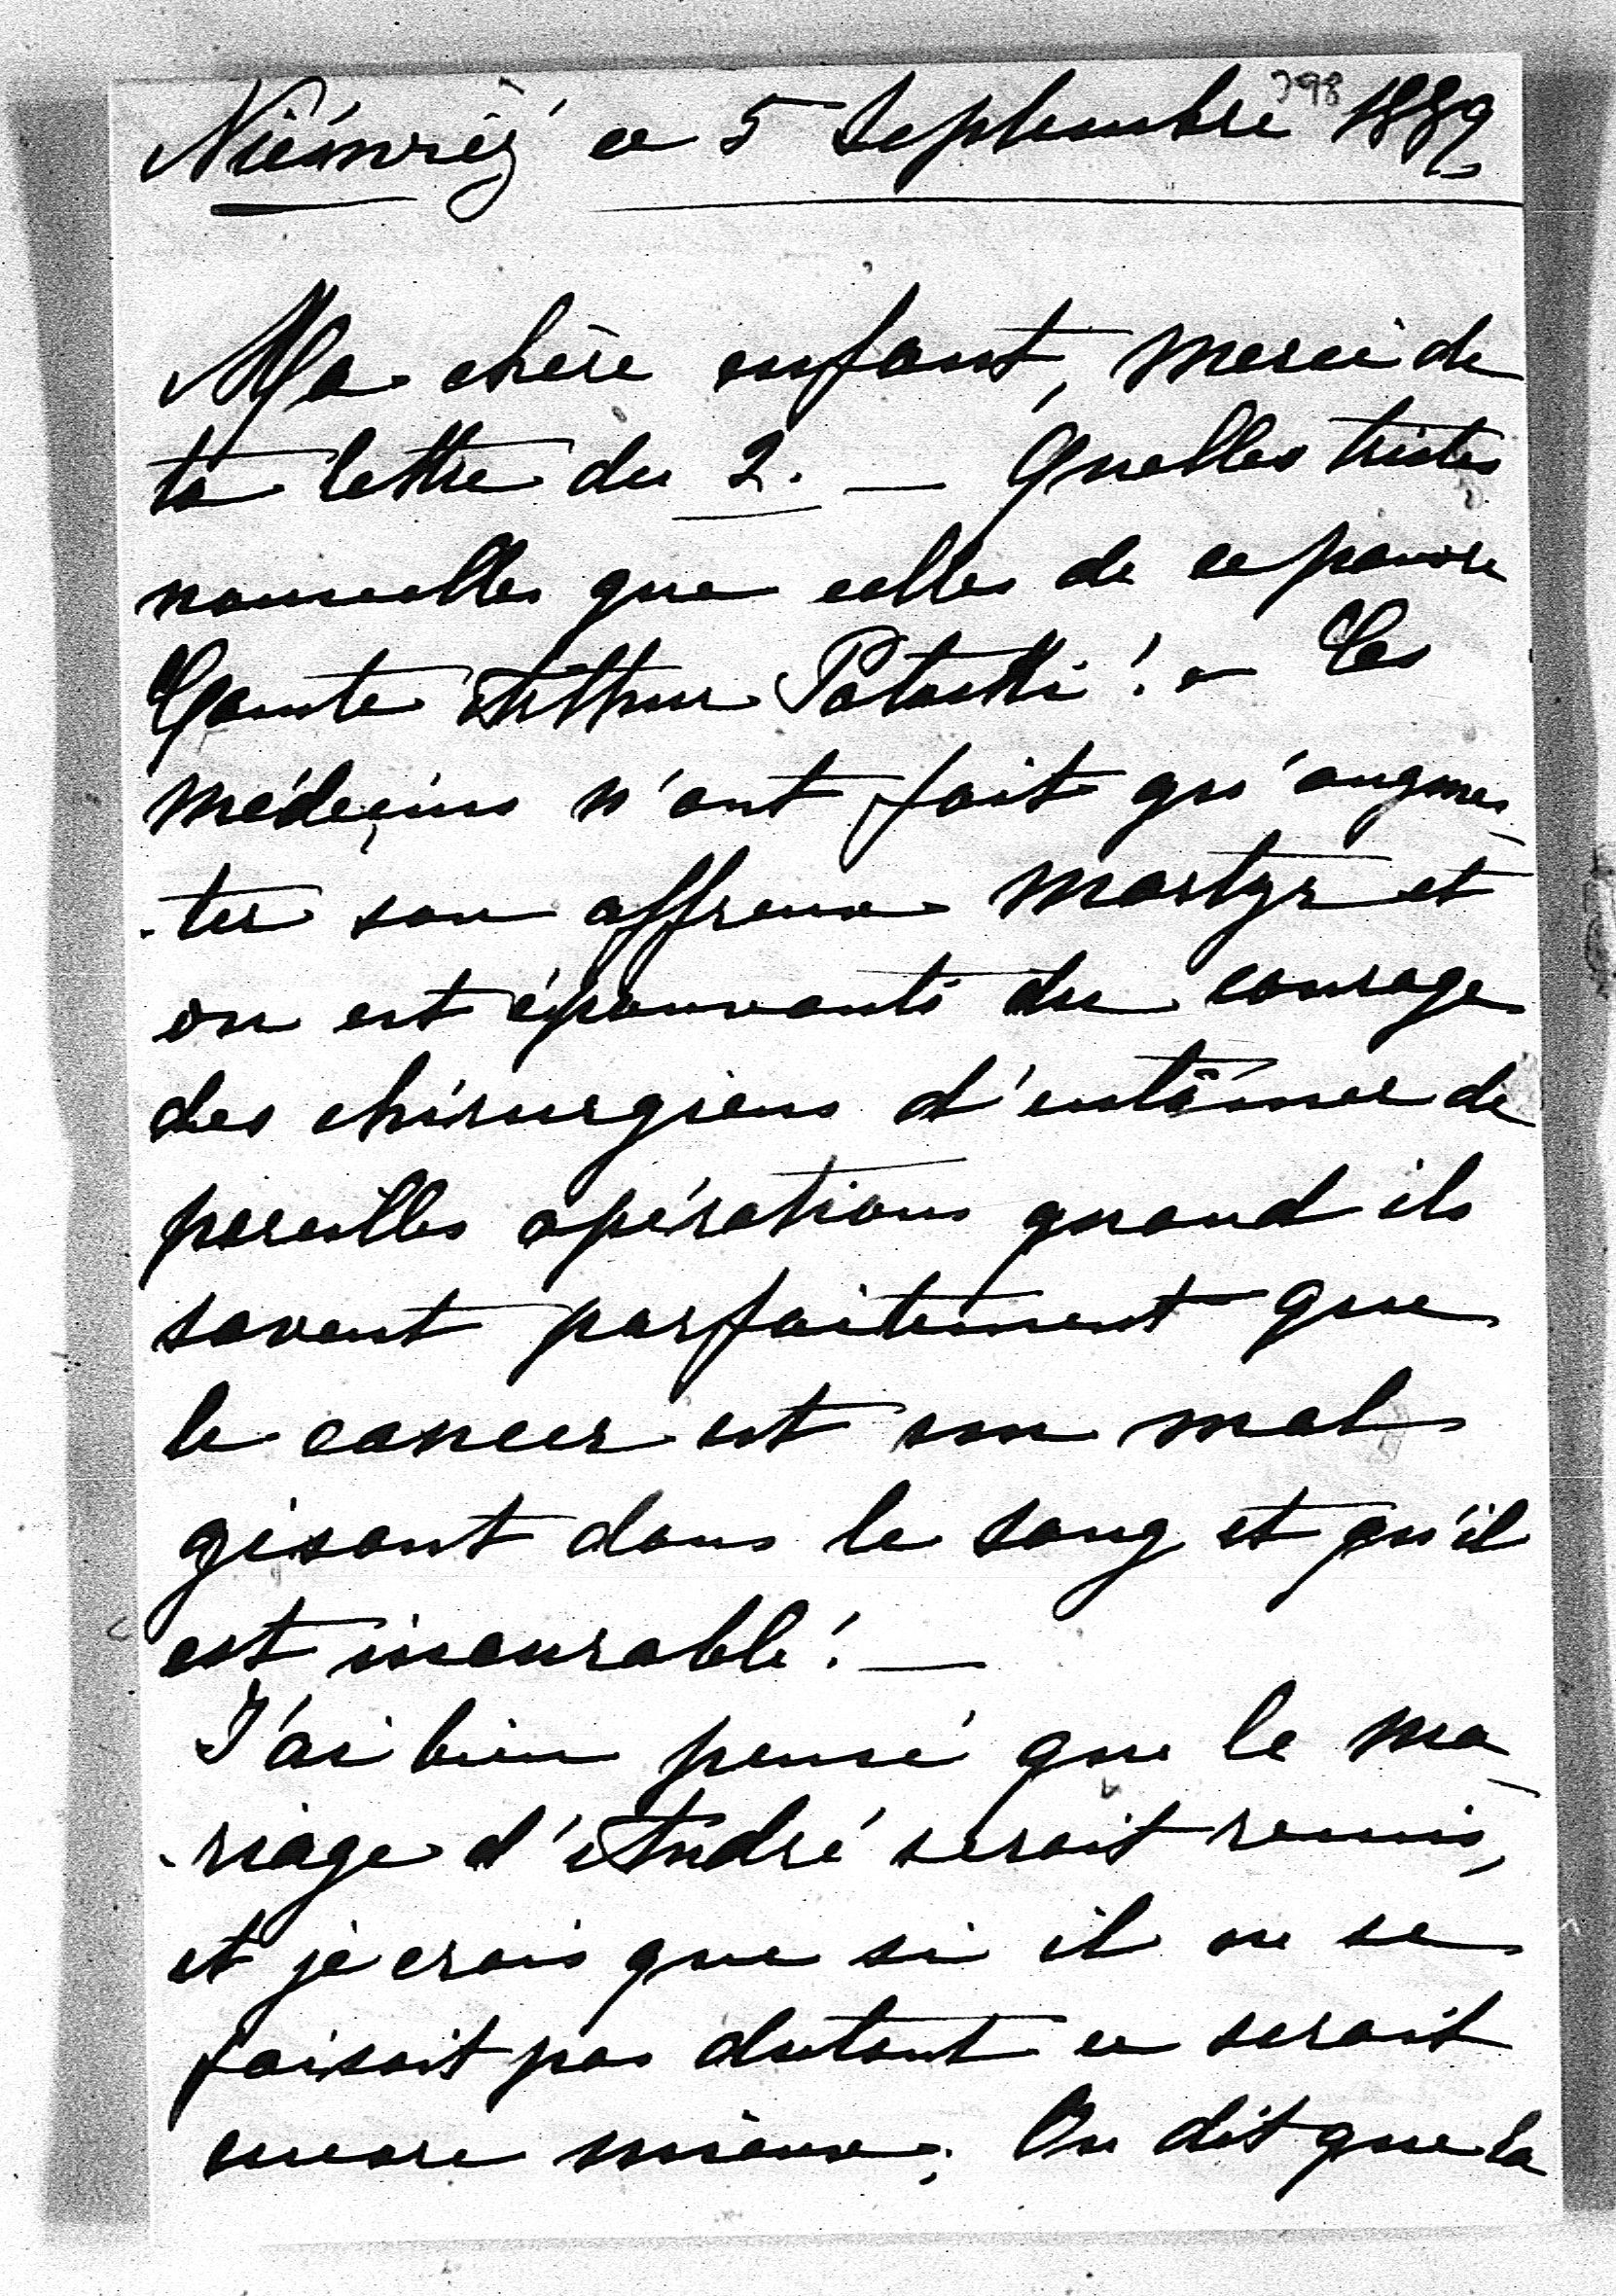 Niémriéz ce 5 Septembre 1889
398
Ma chère enfant, merci de
ta lettre du 2. — Quelles tristes
nouvelles que celles de ce pauvre
Comte Arthur Potocki! – Les
médecins n'ont fait qu'augmen
-ter son affreux martyr et
on est épouvanté du courage
des chirurgiens d'entâmer de
pareilles opérations quand ils
savent parfaitement que
le cancer est un mal
gisant dans le sang et qu'il
est incurable! —
J'ai bien pensé que le ma
-riage d'André serait remis,
et je crois que si il ne se
faisait pas dutout ce serait
encore mieux; On dit que la